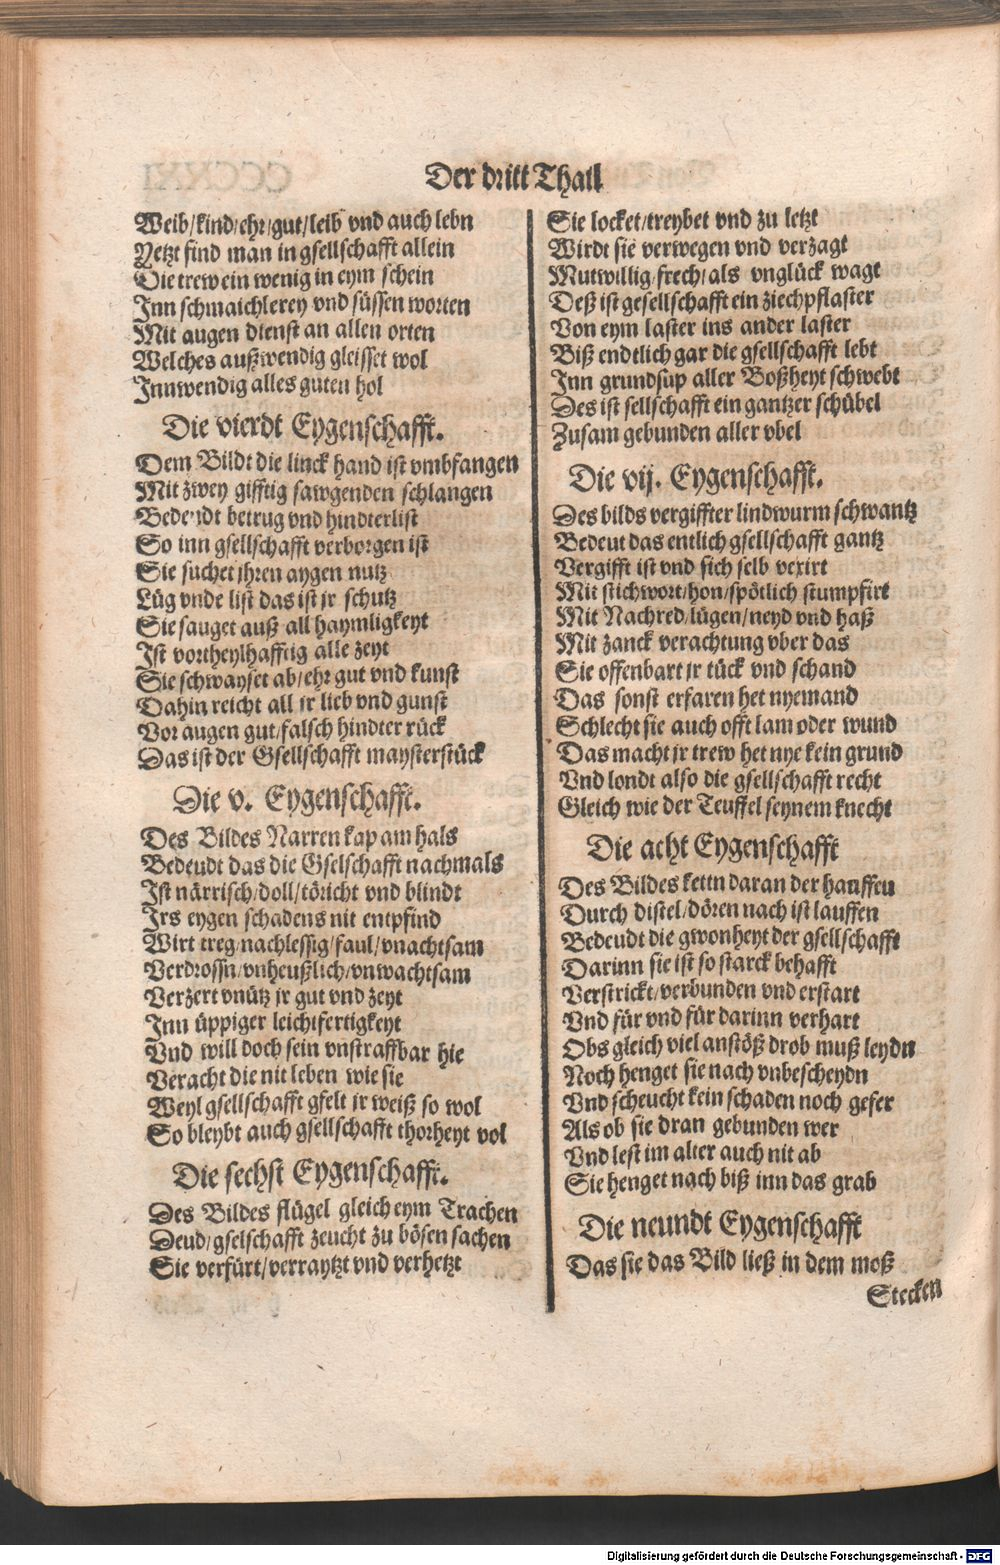 Der dritt Thail
Weib/kind/ehr/gut/leib vnd auch lebn
Yetzt find man in gsellschafft allein
Die trew ein wenig in eym schein
Inn schmaichlerey vnd süssen worten
Mit augen dienst an allen orten
Welches außwendig gleisset wol
Innwendig alles guten hol
Die vierdt Eygenschafft.
Dem Bildt die linck hand ist vmbfangen
Mit zwey gifftig sawgenden schlangen
Bedeudt betrug vnd hindterlist
So inn gsellschafft verborgen ist
Sie suchet jhren aygen nutz
Lüg vnde list das ist jr schutz
Sie sauget auß all haymligkeyt
Ist vortheylhafftig alle zeyt
Sie schwayfet ab/ehr gut vnd kunst
Dahin reicht all jr lieb vnd gunst
Vor augen gut/falsch hindter rück
Das ist der Gsellschafft maysterstück
Die v. Eygenschafft.
Des Bildes Narren kap am hals
Bedeudt das die Gselschafft nachmals
Ist närrisch/doll/töricht vnd blindt
Irs eygen schadens nit entpfind
Wirt treg/nachlessig/faul/vnachtsam
Verdrossn/vnheußlich/vnwachtsam
Verzert vnütz jr gut vnd zeyt
Inn üppiger leichtfertigkeyt
Vnd will doch sein vnstraffbar hie
Veracht die nit leben wie sie
Weyl gsellschafft gfelt jr weiß so wol
So bleybt auch gsellschafft thorheyt vol
Die sechst Eygenschafft.
Des Bildes flügel gleich eym Trachen
Deud/gselschafft zeucht zu bösen sachen
Sie verfürt/verraytzt vnd verhetzt
Sie locket/treybet vnd zu letzt
Wirdt sie verwegen vnd verzagt
Mutwillig/frech/als vnglück wagt
Deß ist gesellschafft ein ziechpflaster
Von eym laster ins ander laster
Biß endtlich gar die gsellschafft lebt
Inn grundsup aller Boßheyt schwebt
Des ist sellschafft ein gantzer schübel
Zusam gebunden aller vbel
Die vij. Eygenschafft.
Des bilds vergiffter lindwurm schwantz
Bedeut das entlich gsellschafft gantz
Vergifft ist vnd sich selb vexirt
Mit stichwort/hon/spötlich stumpfirt
Mit Nachred/lügen/neyd vnd haß
Mit zanck verachtung vber das
Sie offenbart jr tück vnd schand
Das sonst erfaren het nyemand
Schlecht sie auch offt lam oder wund
Das macht jr trew het nye kein grund
Vnd londt also die gsellschafft recht
Gleich wie der Teuffel seynem knecht
Die acht Eygenschafft
Des Bildes kettn daran der hauffen
Durch distel/dören nach ist lauffen
Bedeudt die gwonheyt der gsellschafft
Darinn sie ist so starck behafft
Verstrickt/verbunden vnd erstart
Vnd für vnd für darinn verhart
Obs gleich viel anstöß drob muß leydn
Noch henget sie nach vnbescheydn
Vnd scheucht kein schaden noch gefer
Als ob sie dran gebunden wer
Vnd lest im alter auch nit ab
Sie henget nach biß inn das grab
Die neundt Eygenschafft
Das sie das Bild ließ in dem moß
Stecken
Digitalisierung gefördert durch die Deutsche Forschungsgemeinschaft - DFG